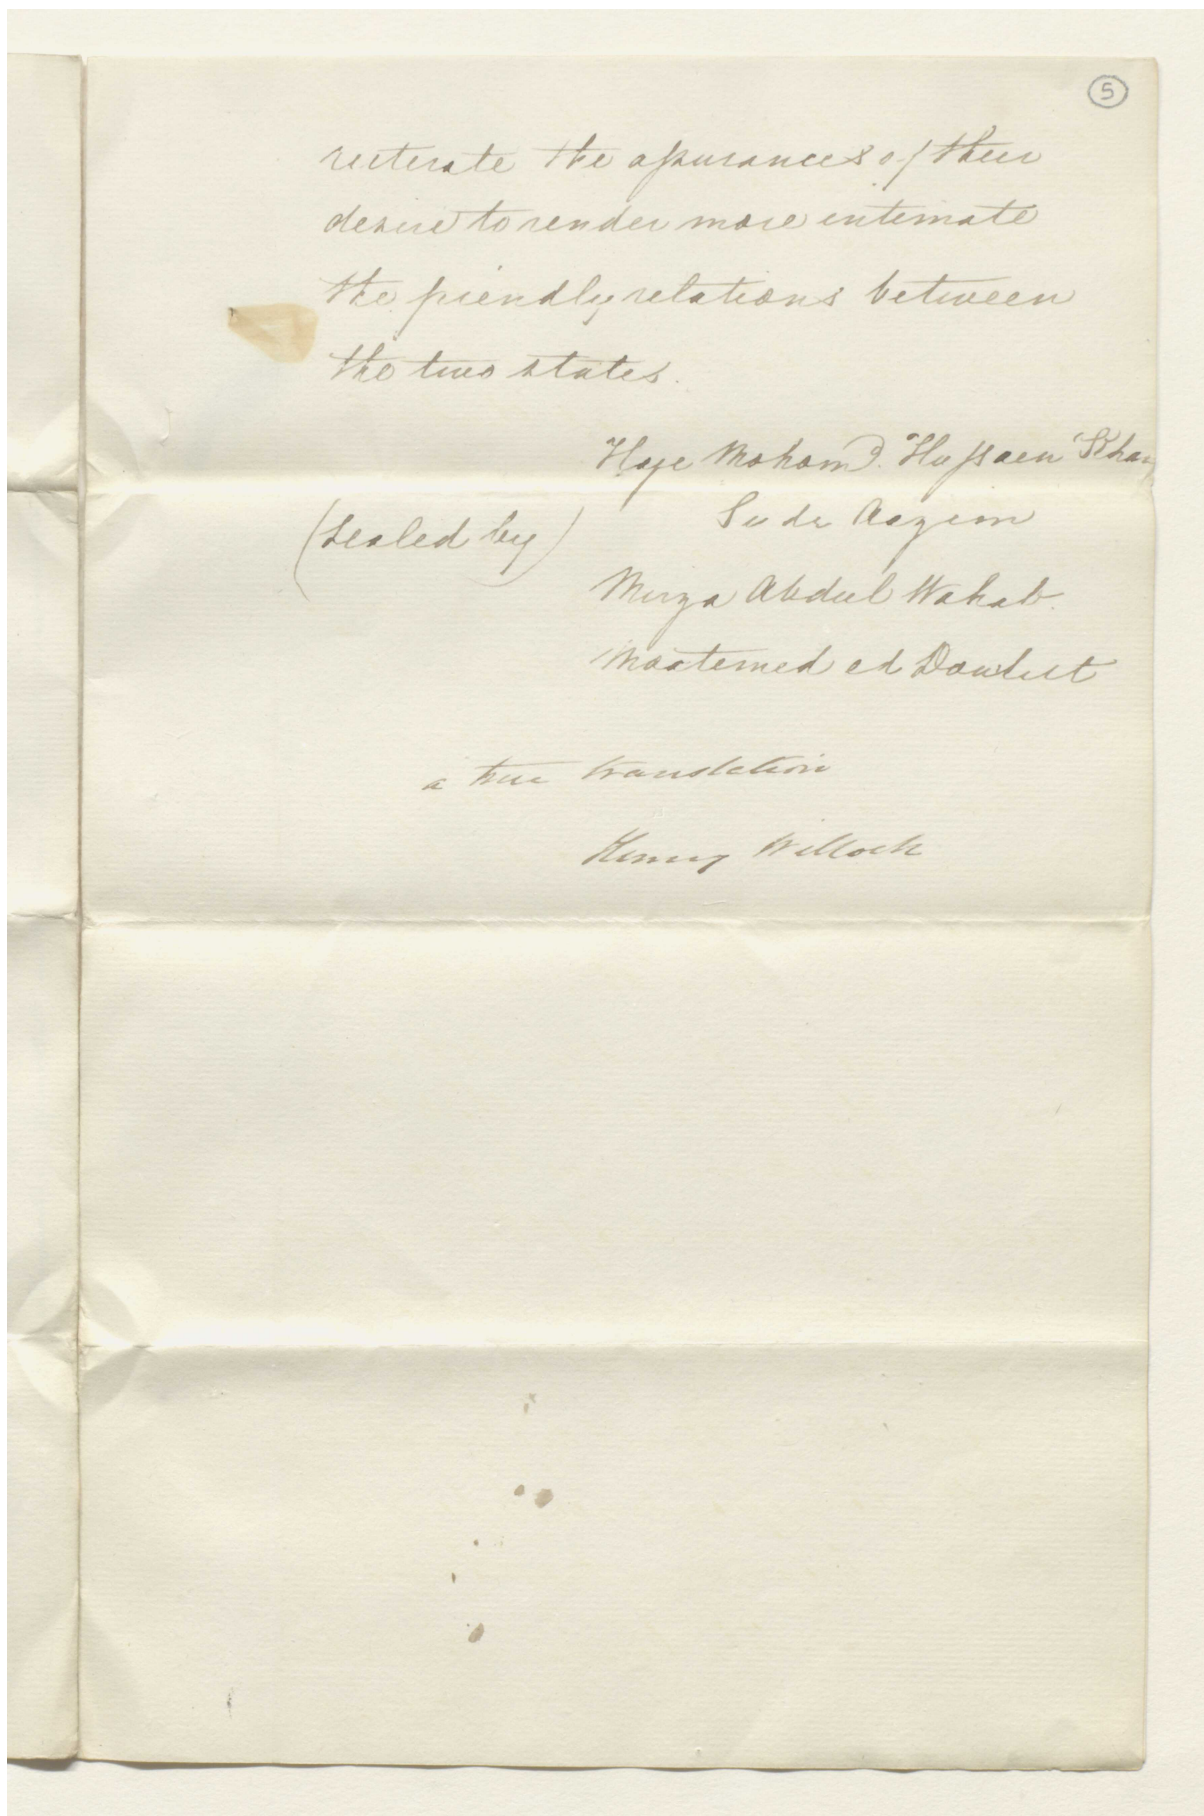 5
reiterate the assurances of their
desire to render more intimate
the friendly relations between
the two states.
Haje Mohamd. Hussaen Khan
(Sealed by)
Sudr Aazim
Mirza Abdul Wahab.
Maatemed ed Dowlut
a true translation
Henry Willock